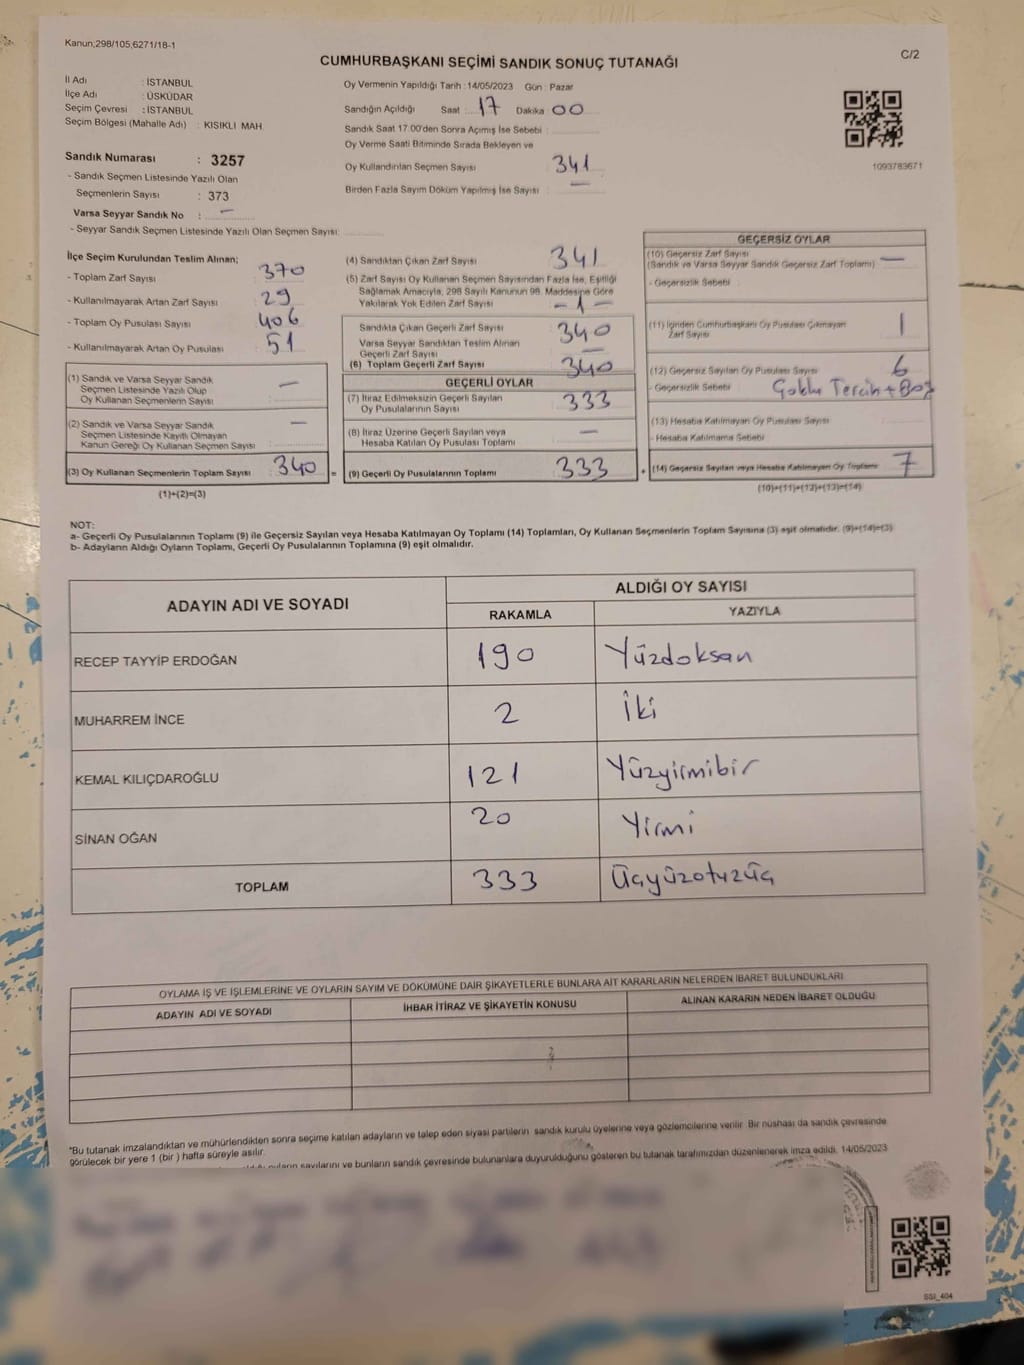 Kanun;298/105,6271/18-1
C/2
CUMHURBAŞKANI SEÇİMİ SANDIK SONUÇ TUTANAĞI
İl Adı : İSTANBUL
İlçe Adı : ÜSKÜDAR
Seçim Çevresi : İSTANBUL
Seçim Bölgesi (Mahalle Adı) : KISIKLI MAH.
Sandık Numarası : 3257
- Sandık Seçmen Listesinde Yazılı Olan
Seçmenlerin Sayısı : 373
Varsa Seyyar Sandık No : -
- Seyyar Sandık Seçmen Listesinde Yazılı Olan Seçmen Sayısı:
Oy Vermenin Yapıldığı Tarih : 14/05/2023 Gün : Pazar
Sandığın Açıldığı Saat : 17 Dakika 00
Sandık Saat 17.00'den Sonra Açımış İse Sebebi :
Oy Verme Saati Bitiminde Sırada Bekleyen ve
Oy Kullandırılan Seçmen Sayısı 341
Birden Fazla Sayım Döküm Yapılmış İse Sayısı : -
1093783671
İlçe Seçim Kurulundan Teslim Alınan;
- Toplam Zarf Sayısı 370
- Kullanılmayarak Artan Zarf Sayısı 29
- Toplam Oy Pusulası Sayısı 406
- Kullanılmayarak Artan Oy Pusulası 51
(1) Sandık ve Varsa Seyyar Sandık
Seçmen Listesinde Yazılı Olup
Oy Kullanan Seçmenlerin Sayısı -
(2) Sandık ve Varsa Seyyar Sandık
Seçmen Listesinde Kayıtlı Olmayan
Kanun Gereği Oy Kullanan Seçmen Sayısı -
(3) Oy Kullanan Seçmenlerin Toplam Sayısı 340 =
(1)+(2)=(3)
(4) Sandıktan Çıkan Zarf Sayısı 341
(5) Zarf Sayısı Oy Kullanan Seçmen Sayısından Fazla İse, Eşitliği
Sağlamak Amacıyla, 298 Sayılı Kanunun 98. Maddesine Göre
Yakılarak Yok Edilen Zarf Sayısı -1-
Sandıkta Çıkan Geçerli Zarf Sayısı 340
Varsa Seyyar Sandıktan Teslim Alınan
Geçerli Zarf Sayısı -
(6) Toplam Geçerli Zarf Sayısı 340
GEÇERLİ OYLAR
(7) İtiraz Edilmeksizin Geçerli Sayılan
Oy Pusulalarının Sayısı 333
(8) İtiraz Üzerine Geçerli Sayılan veya
Hesaba Katılan Oy Pusulası Toplamı -
(9) Geçerli Oy Pusulalarının Toplamı 333 +
GEÇERSİZ OYLAR
(10) Geçersiz Zarf Sayısı
(Sandık ve Varsa Seyyar Sandık Geçersiz Zarf Toplamı) -
- Geçersizlik Sebebi :
(11) İçinden Cumhurbaşkanı Oy Pusulası Çıkmayan
Zarf Sayısı 1
(12) Geçersiz Sayılan Oy Pusulası Sayısı 6
- Geçersizlik Sebebi Çoklu Tercih + Boş
(13) Hesaba Katılmayan Oy Pusulası Sayısı
- Hesaba Katılmama Sebebi
(14) Geçersiz Sayılan veya Hesaba Katılmayan Oy Toplamı 7
(10)+(11)+(12)+(13)=(14)
NOT:
a- Geçerli Oy Pusulalarının Toplamı (9) ile Geçersiz Sayılan veya Hesaba Katılmayan Oy Toplamı (14) Toplamları, Oy Kullanan Seçmenlerin Toplam Sayısına (3) eşit olmalıdır. (9)+(14)=(3)
b- Adayların Aldığı Oyların Toplamı, Geçerli Oy Pusulalarının Toplamına (9) eşit olmalıdır.
ADAYIN ADI VE SOYADI
ALDIĞI OY SAYISI
RAKAMLA YAZIYLA
RECEP TAYYİP ERDOĞAN 190 Yüzdoksan
MUHARREM İNCE 2 İki
KEMAL KILIÇDAROĞLU 121 Yüzyirmibir
SİNAN OĞAN 20 Yirmi
TOPLAM 333 Üçyüzotuzüç
OYLAMA İŞ VE İŞLEMLERİNE VE OYLARIN SAYIM VE DÖKÜMÜNE DAİR ŞİKAYETLERLE BUNLARA AİT KARARLARIN NELERDEN İBARET BULUNDUKLARI
ADAYIN ADI VE SOYADI İHBAR İTİRAZ VE ŞİKAYETİN KONUSU ALINAN KARARIN NEDEN İBARET OLDUĞU
*Bu tutanak imzalandıktan ve mühürlendikten sonra seçime katılan adayların ve talep eden siyasi partilerin sandık kurulu üyelerine veya gözlemcilerine verilir. Bir nüshası da sandık çevresinde
görülecek bir yere 1 (bir) hafta süreyle asılır.
sayılarını ve bunların sandık çevresinde bulunanlara duyurulduğunu gösteren bu tutanak tarafımızdan düzenlenerek imza edildi. 14/05/2023
SSI_404